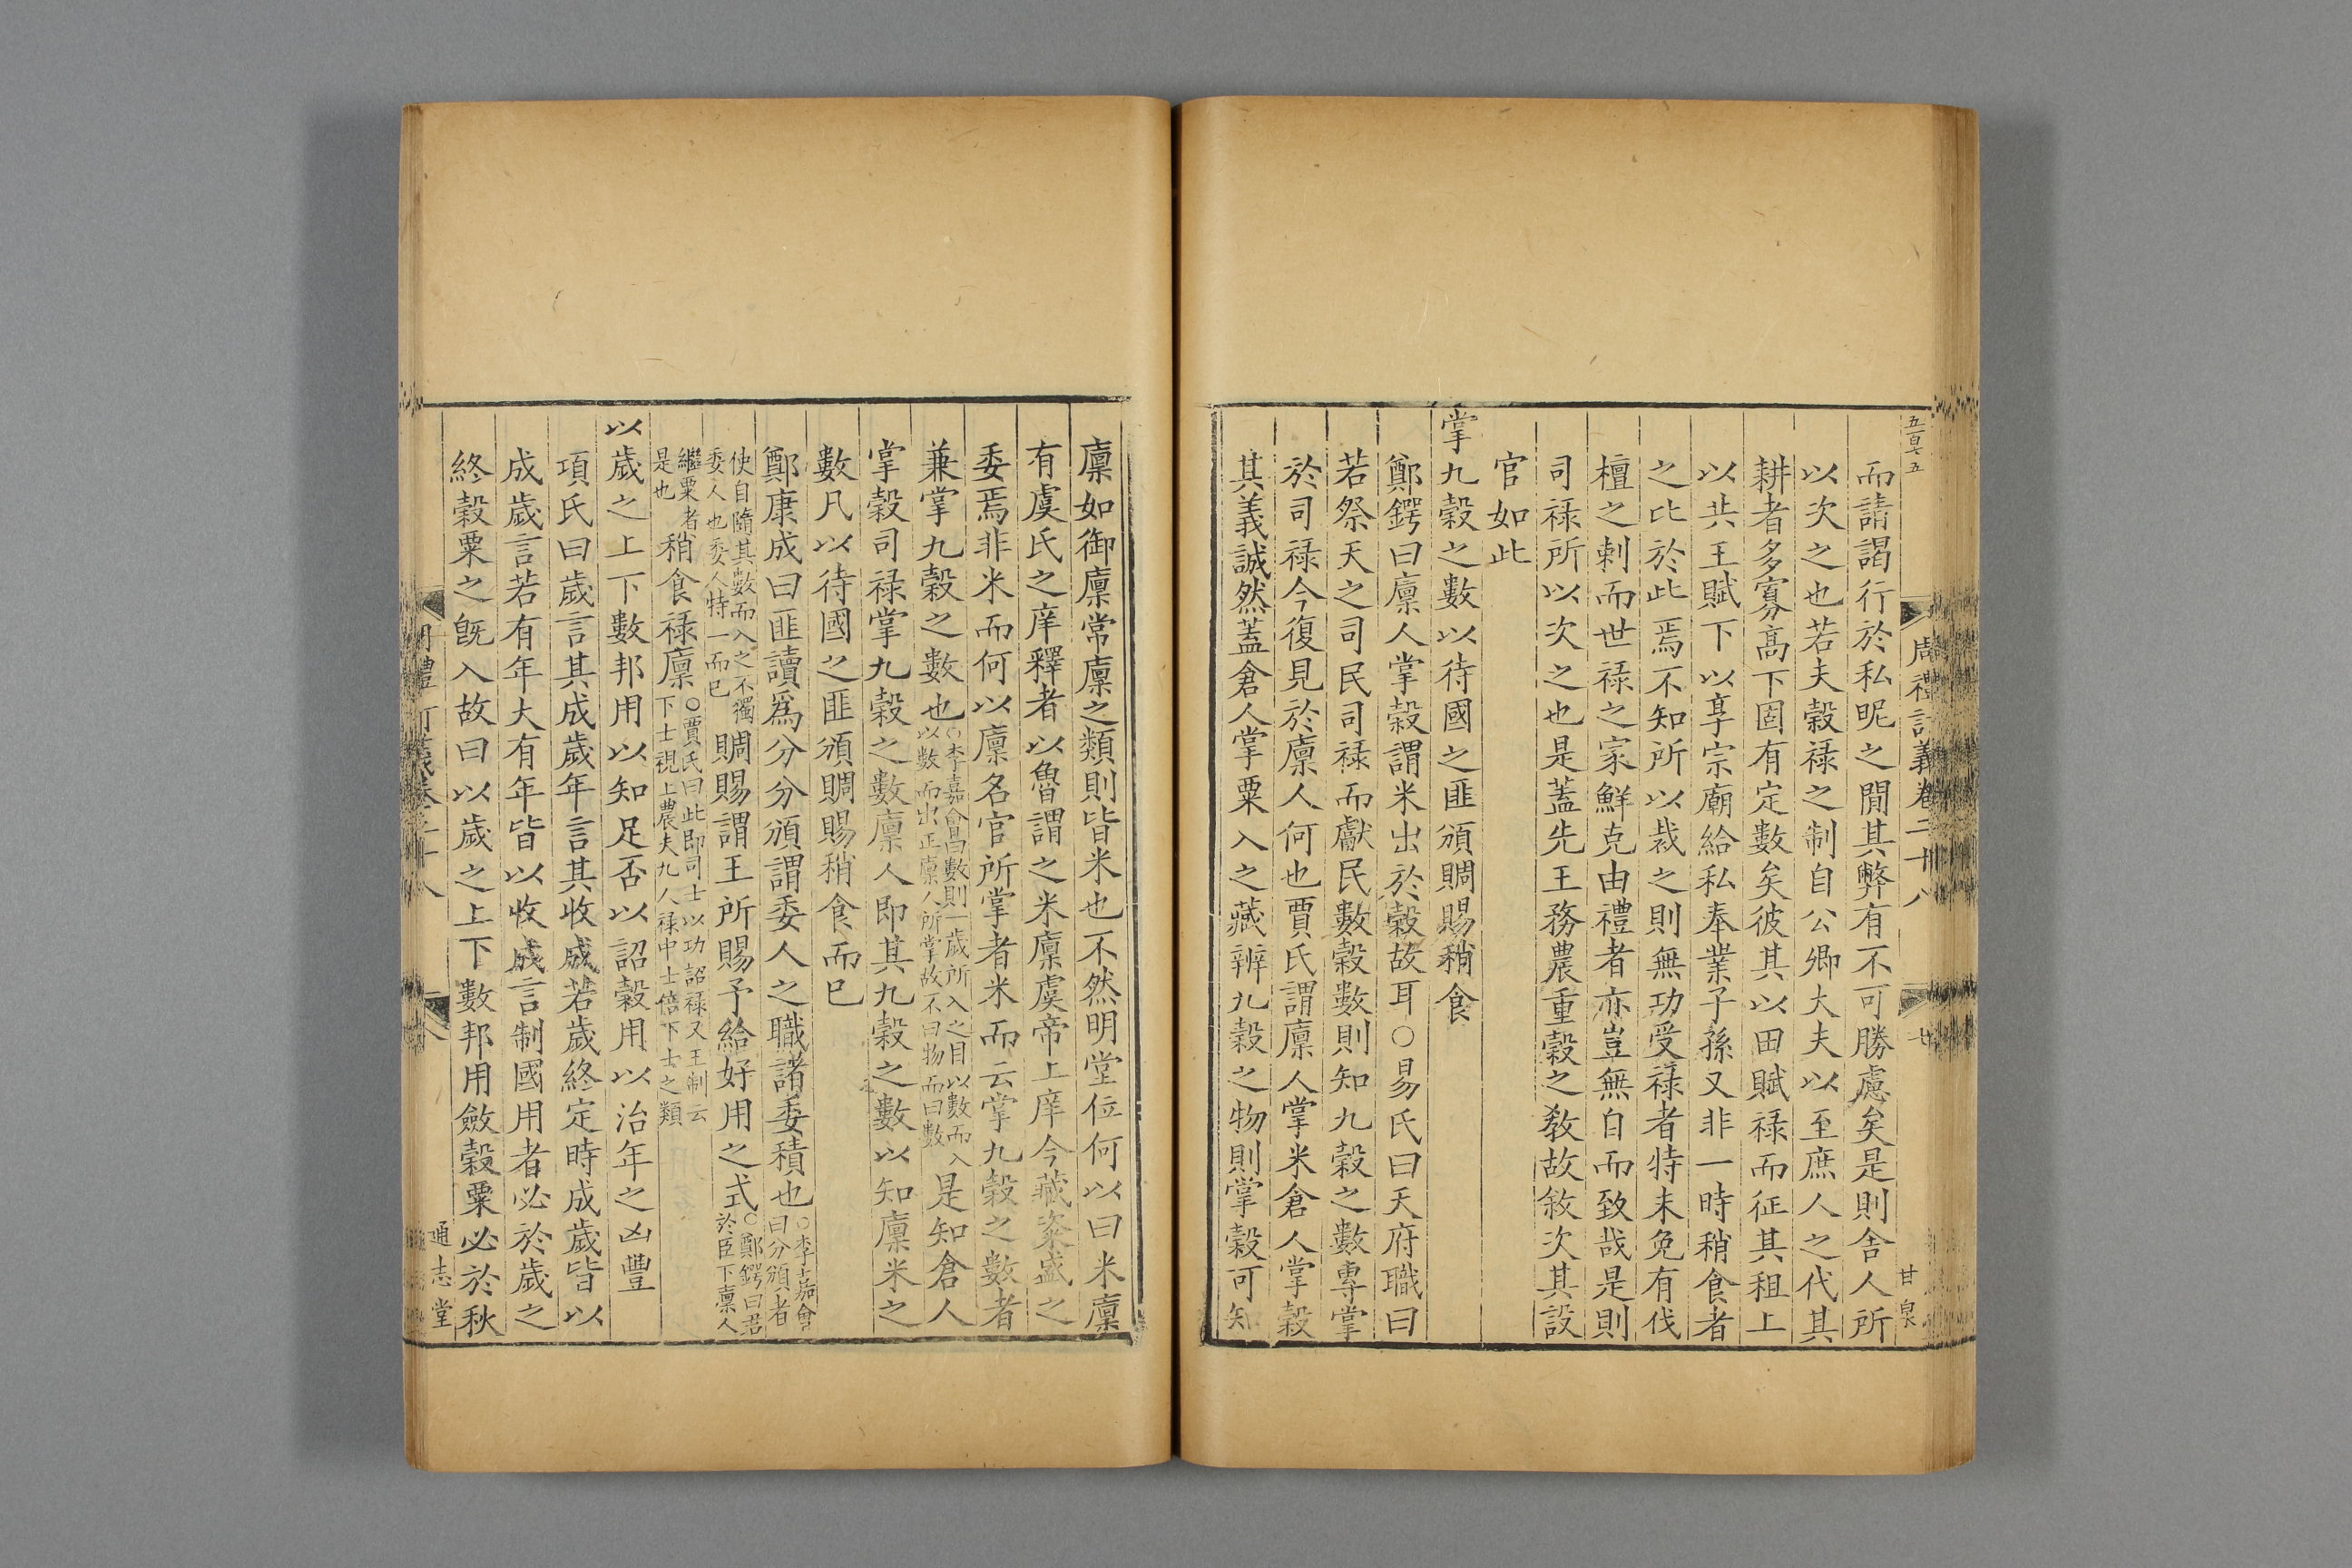 五百六五
周禮訂義卷二十八
七
甘泉
而請謁行於私昵之閒其弊有不可勝慮矣是則舍人所
以次之也若夫穀祿之制自公卿大夫以至庶人之代其
耕者多寡高下固有定數矣彼其以田賦祿而征其租上
以共王賦下以享宗廟給私奉業子孫又非一時稍食者
之比於此焉不知所以裁之則無功受祿者特未免有伐
檀之刺而世祿之家鮮克由禮者亦豈無自而致哉是則
司祿所以次之也是蓋先王務農重穀之教故敘次其設
官如此
掌九穀之數以待國之匪頒賙賜稍食
鄭鍔曰廩人掌穀謂米出於穀故耳○易氏曰天府職曰
若祭天之司民司祿而獻民數穀數則知九穀之數專掌
於司祿今復見於廩人何也賈氏謂廩人掌米倉人掌穀
其義誠然蓋倉人掌粟入之藏辨九穀之物則掌穀可知
廩如御廩常廩之類則皆米也不然明堂位何以曰米廩
有虞氏之庠釋者以魯謂之米廩虞帝上庠今藏粢盛之
委焉非米而何以廩名官所掌者米而云掌九穀之數者
兼掌九穀之數也○李嘉會曰數則一歲所入之目以數而入以數而出正廩人所掌故不曰物而曰數是知倉人
掌穀司祿掌九穀之數廩人即其九穀之數以知廩米之
數凡以待國之匪頒賙賜稍食而已
鄭康成曰匪讀爲分分頒謂委人之職諸委積也○李嘉會曰分頒者
使自隨其數而入之不獨委人也委人特一而已賙賜謂王所賜予給好用之式○鄭鍔曰君於臣下廩人
繼粟者是也稍食祿廩○賈氏曰此即司士以功詔祿又王制云下士視上農夫九人祿中士倍下士之類
以歲之上下數邦用以知足否以詔穀用以治年之凶豐
項氏曰歲言其成歲年言其收成若歲終定時成歲皆以
成歲言若有年大有年皆以收成言制國用者必於歲之
終穀粟之既入故曰以歲之上下數邦用斂穀粟必於秋
通志堂